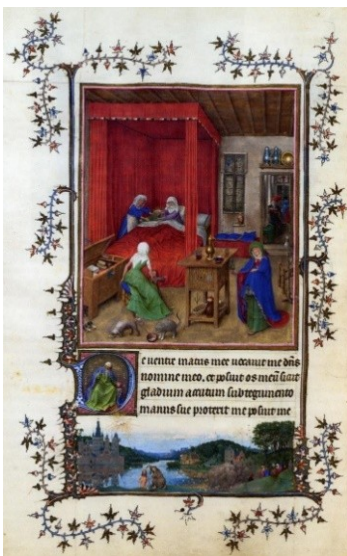 De uentre matris mee uocauit me dn̄s
nomine meo, et posuit os meū sicut
gladium acutum sub tegumento
manus sue protexit me posuit me